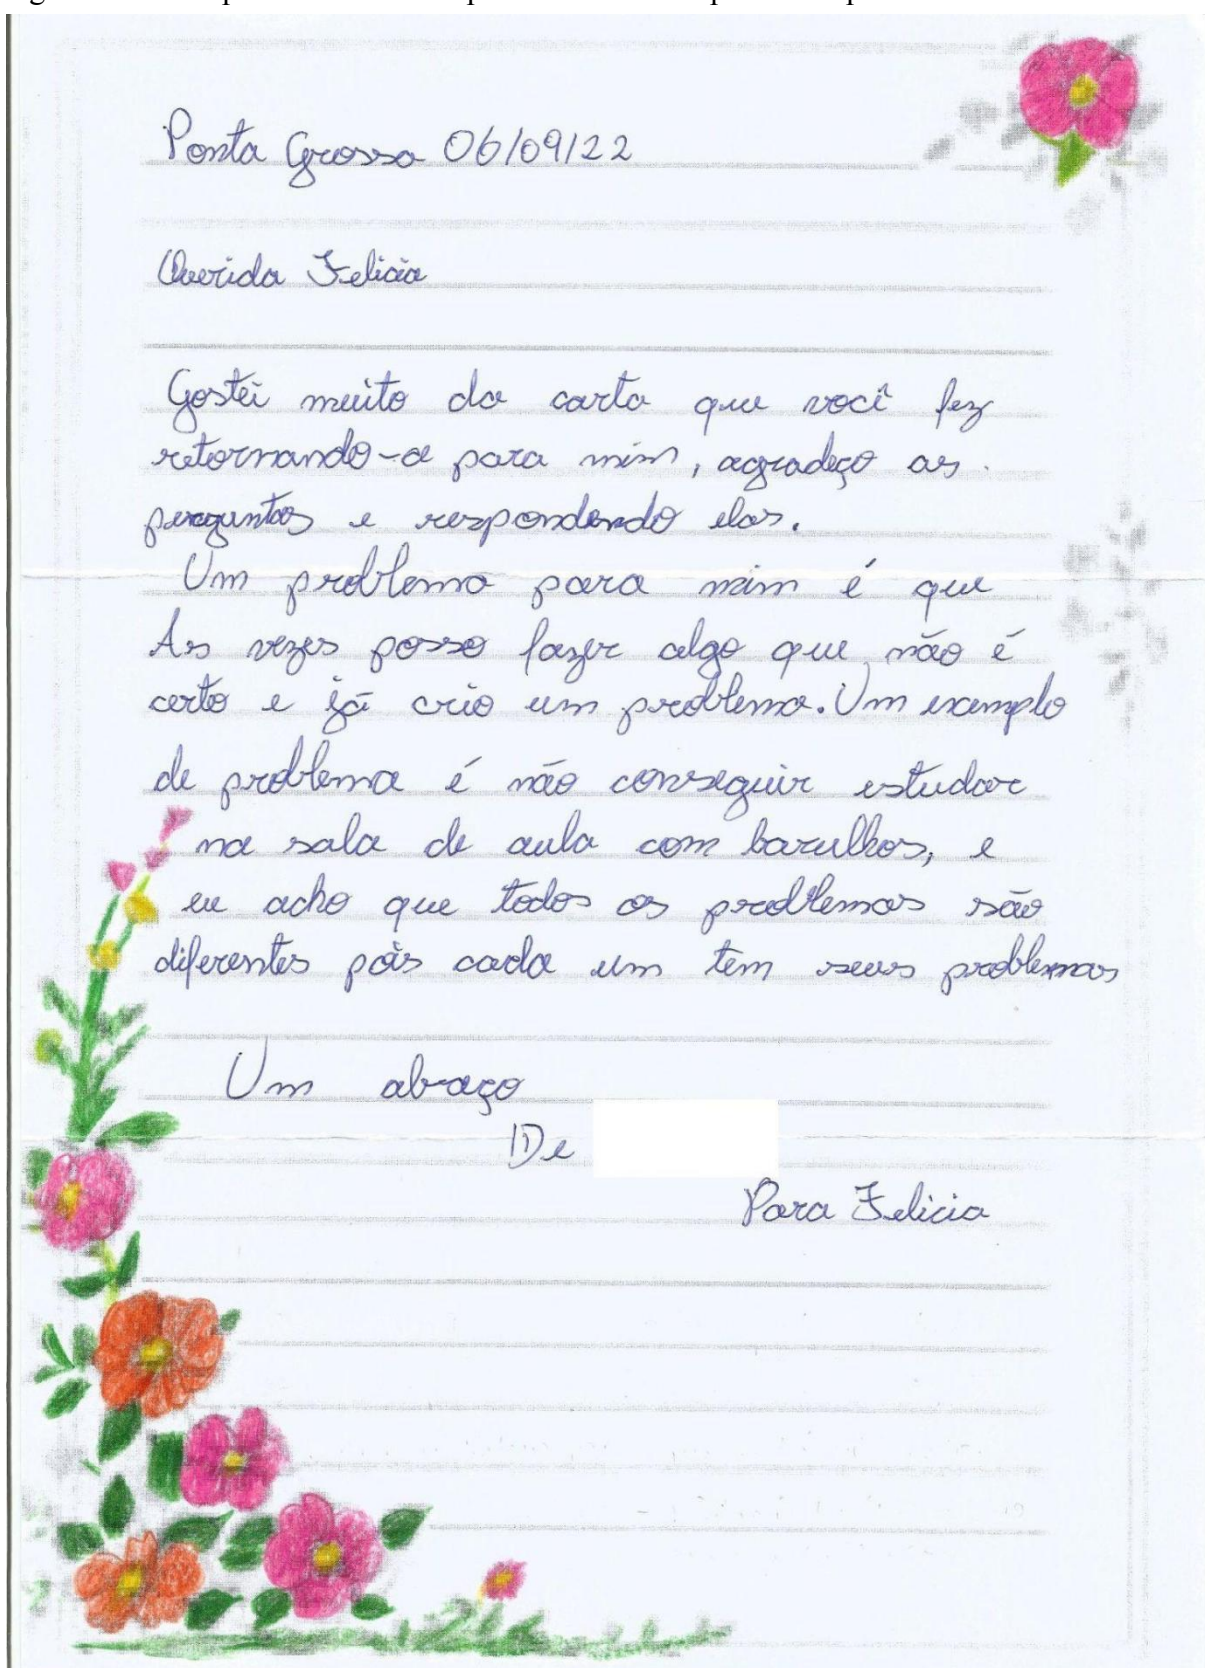 Ponta Grossa 06/09/22
Querida Felicia
Gostei muito da carta que você fez
retornando-a para mim, agradeço as
perguntas e respondendo elas.
Um problema para mim é que
As vezes posso fazer algo que não é
certo e já crio um problema. Um exemplo
de problema é não conseguir estudar
na sala de aula com barulhos, e
eu acho que todos os problemas são
diferentes pois cada um tem seus problemas
Um abraço
De
Para Felicia